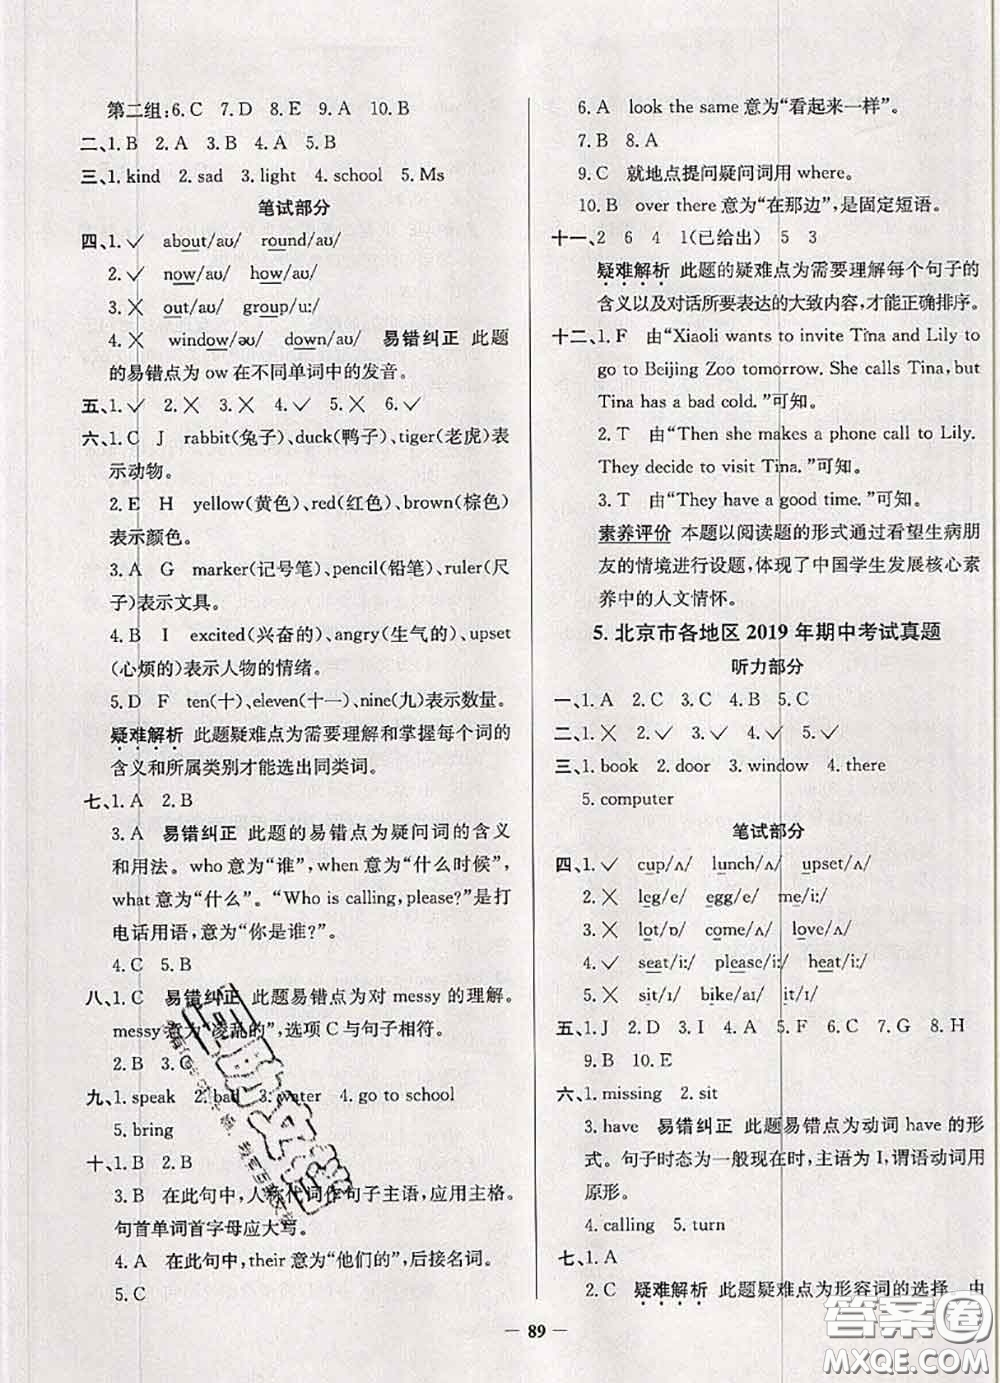 第二组:6. C 7. D 8. E 9. A 10. B
二、1. B 2. A 3. B 4. A 5. B
三、1. kind 2. sad 3. light 4. school 5. Ms
笔试部分
四、1. ✓ about/aʊ/ round/aʊ/
2. ✓ now/aʊ/ how/aʊ/
3. ✗ out/aʊ/ group/u:/
4. ✗ window/əʊ/ down/aʊ/ 易错纠正 此题
的易错点为 ow 在不同单词中的发音。
五、1. ✓ 2. ✗ 3. ✗ 4. ✓ 5. ✗ 6. ✓
六、1. C J rabbit(兔子)、duck(鸭子)、tiger(老虎)表
示动物。
2. E H yellow(黄色)、red(红色)、brown(棕色)
表示颜色。
3. A G marker(记号笔)、pencil(铅笔)、ruler(尺
子)表示文具。
4. B I excited(兴奋的)、angry(生气的)、upset
(心烦的)表示人物的情绪。
5. D F ten(十)、eleven(十一)、nine(九)表示数量。
疑难解析 此题疑难点为需要理解和掌握每个词的
含义和所属类别才能选出同类词。
七、1. A 2. B
3. A 易错纠正 此题的易错点为疑问词的含义
和用法。who 意为“谁”,when 意为“什么时候”,
what 意为“什么”。“Who is calling, please?”是打
电话用语,意为“你是谁?”。
4. C 5. B
八、1. C 易错纠正 此题易错点为对 messy 的理解。
messy 意为“凌乱的”,选项 C 与句子相符。
2. B 3. C
九、1. speak 2. bad 3. water 4. go to school
5. bring
十、1. B 2. B
3. B 在此句中,人称代词作句子主语,应用主格。
句首单词首字母应大写。
4. A 在此句中,their 意为“他们的”,后接名词。
5. C
6. A look the same 意为“看起来一样”。
7. B 8. A
9. C 就地点提问疑问词用 where。
10. B over there 意为“在那边”,是固定短语。
十一、2 6 4 1(已给出) 5 3
疑难解析 此题的疑难点为需要理解每个句子的
含义以及对话所要表达的大致内容,才能正确排序。
十二、1. F 由“Xiaoli wants to invite Tina and Lily to
go to Beijing Zoo tomorrow. She calls Tina, but
Tina has a bad cold.”可知。
2. T 由“Then she makes a phone call to Lily.
They decide to visit Tina.”可知。
3. T 由“They have a good time.”可知。
素养评价 本题以阅读题的形式通过看望生病朋
友的情境进行设题,体现了中国学生发展核心素
养中的人文情怀。
5. 北京市各地区 2019 年期中考试真题
听力部分
一、1. A 2. C 3. C 4. B 5. C
二、1. ✗ 2. ✓ 3. ✓ 4. ✓ 5. ✓
三、1. book 2. door 3. window 4. there
5. computer
笔试部分
四、1. ✓ cup/ʌ/ lunch/ʌ/ upset/ʌ/
2. ✗ leg/e/ egg/e/ me/i:/
3. ✗ lot/ɒ/ come/ʌ/ love/ʌ/
4. ✓ seat/i:/ please/i:/ heat/i:/
5. ✗ sit/ɪ/ bike/aɪ/ it/ɪ/
五、1. J 2. D 3. I 4. A 5. F 6. C 7. G 8. H
9. B 10. E
六、1. missing 2. sit
3. have 易错纠正 此题易错点为动词 have 的形
式。句子时态为一般现在时,主语为 I,谓语动词用
原形。
4. calling 5. turn
七、1. A
2. C 疑难解析 此题疑难点为形容词的选择。由
— 89 —
答案圈
MXQE.COM